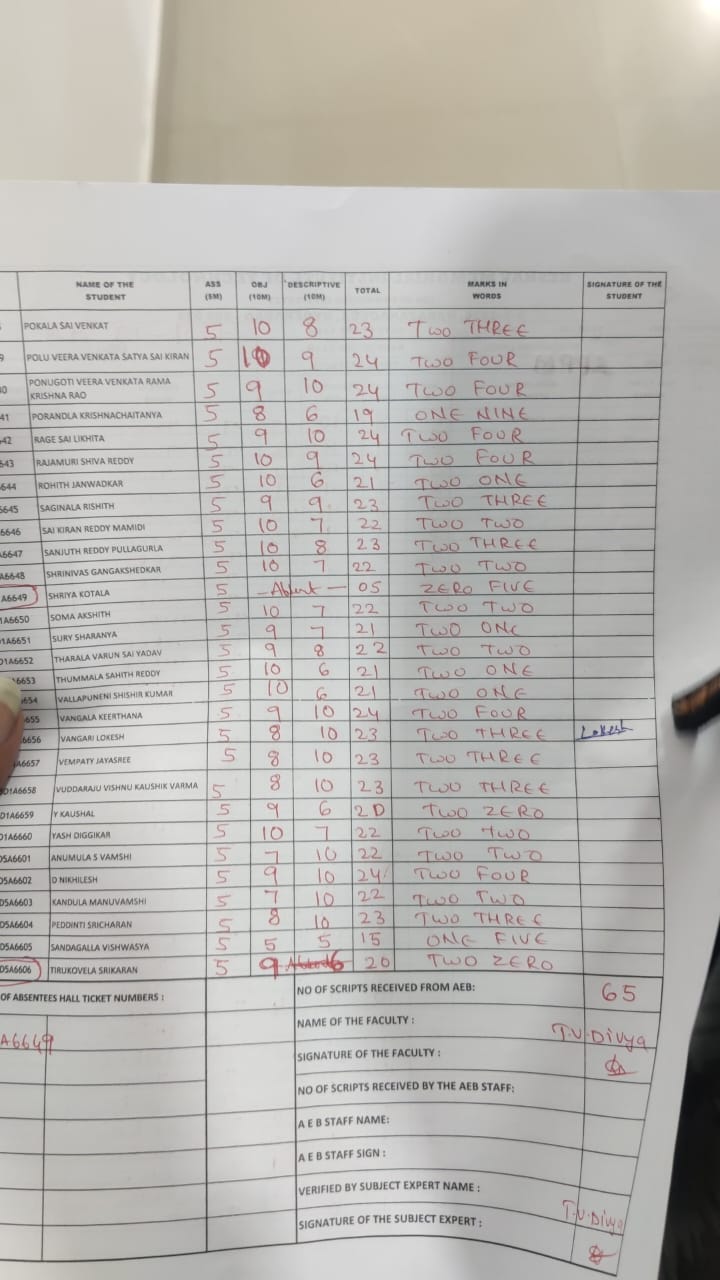 NAME OF THE STUDENT ASS (5M) OBJ (10M) DESCRIPTIVE (10M) TOTAL MARKS IN WORDS SIGNATURE OF THE STUDENT
POKALA SAI VENKAT 5 10 8 23 TWO THREE
9 POLU VEERA VENKATA SATYA SAI KIRAN 5 10 9 24 TWO FOUR
40 PONUGOTI VEERA VENKATA RAMA KRISHNA RAO 5 9 10 24 TWO FOUR
41 PORANDLA KRISHNACHAITANYA 5 8 6 19 ONE NINE
642 RAGE SAI LIKHITA 5 9 10 24 TWO FOUR
643 RAJAMURI SHIVA REDDY 5 10 9 24 TWO FOUR
644 ROHITH JANWADKAR 5 10 6 21 TWO ONE
6645 SAGINALA RISHITH 5 9 9 23 TWO THREE
6646 SAI KIRAN REDDY MAMIDI 5 10 7 22 TWO TWO
6647 SANJUTH REDDY PULLAGURLA 5 10 8 23 TWO THREE
A6648 SHRINIVAS GANGAKSHEDKAR 5 10 7 22 TWO TWO
A6649 SHRIYA KOTALA 5 - Absent - 05 ZERO FIVE
1A6650 SOMA AKSHITH 5 10 7 22 TWO TWO
1A6651 SURY SHARANYA 5 9 7 21 TWO ONE
D1A6652 THARALA VARUN SAI YADAV 5 9 8 22 TWO TWO
6653 THUMMALA SAHITH REDDY 5 10 6 21 TWO ONE
6654 VALLAPUNENI SHISHIR KUMAR 5 10 6 21 TWO ONE
6655 VANGALA KEERTHANA 5 9 10 24 TWO FOUR
6656 VANGARI LOKESH 5 8 10 23 TWO THREE Lokesh
A6657 VEMPATY JAYASREE 5 8 10 23 TWO THREE
D1A6658 VUDDARAJU VISHNU KAUSHIK VARMA 5 8 10 23 TWO THREE
D1A6659 Y KAUSHAL 5 9 6 20 TWO ZERO
D1A6660 YASH DIGGIKAR 5 10 7 22 TWO TWO
D5A6601 ANUMULA S VAMSHI 5 7 10 22 TWO TWO
D5A6602 D NIKHILESH 5 9 10 24 TWO FOUR
D5A6603 KANDULA MANUVAMSHI 5 7 10 22 TWO TWO
D5A6604 PEDDINTI SRICHARAN 5 8 10 23 TWO THREE
D5A6605 SANDAGALLA VISHWASYA 5 5 5 15 ONE FIVE
D5A6606 TIRUKOVELA SRIKARAN 5 9 6 20 TWO ZERO
OF ABSENTEES HALL TICKET NUMBERS : NO OF SCRIPTS RECEIVED FROM AEB: 65
A6649 NAME OF THE FACULTY : T.V.Divya
SIGNATURE OF THE FACULTY :
NO OF SCRIPTS RECEIVED BY THE AEB STAFF:
A E B STAFF NAME:
A E B STAFF SIGN :
VERIFIED BY SUBJECT EXPERT NAME : T.V.Divya
SIGNATURE OF THE SUBJECT EXPERT :